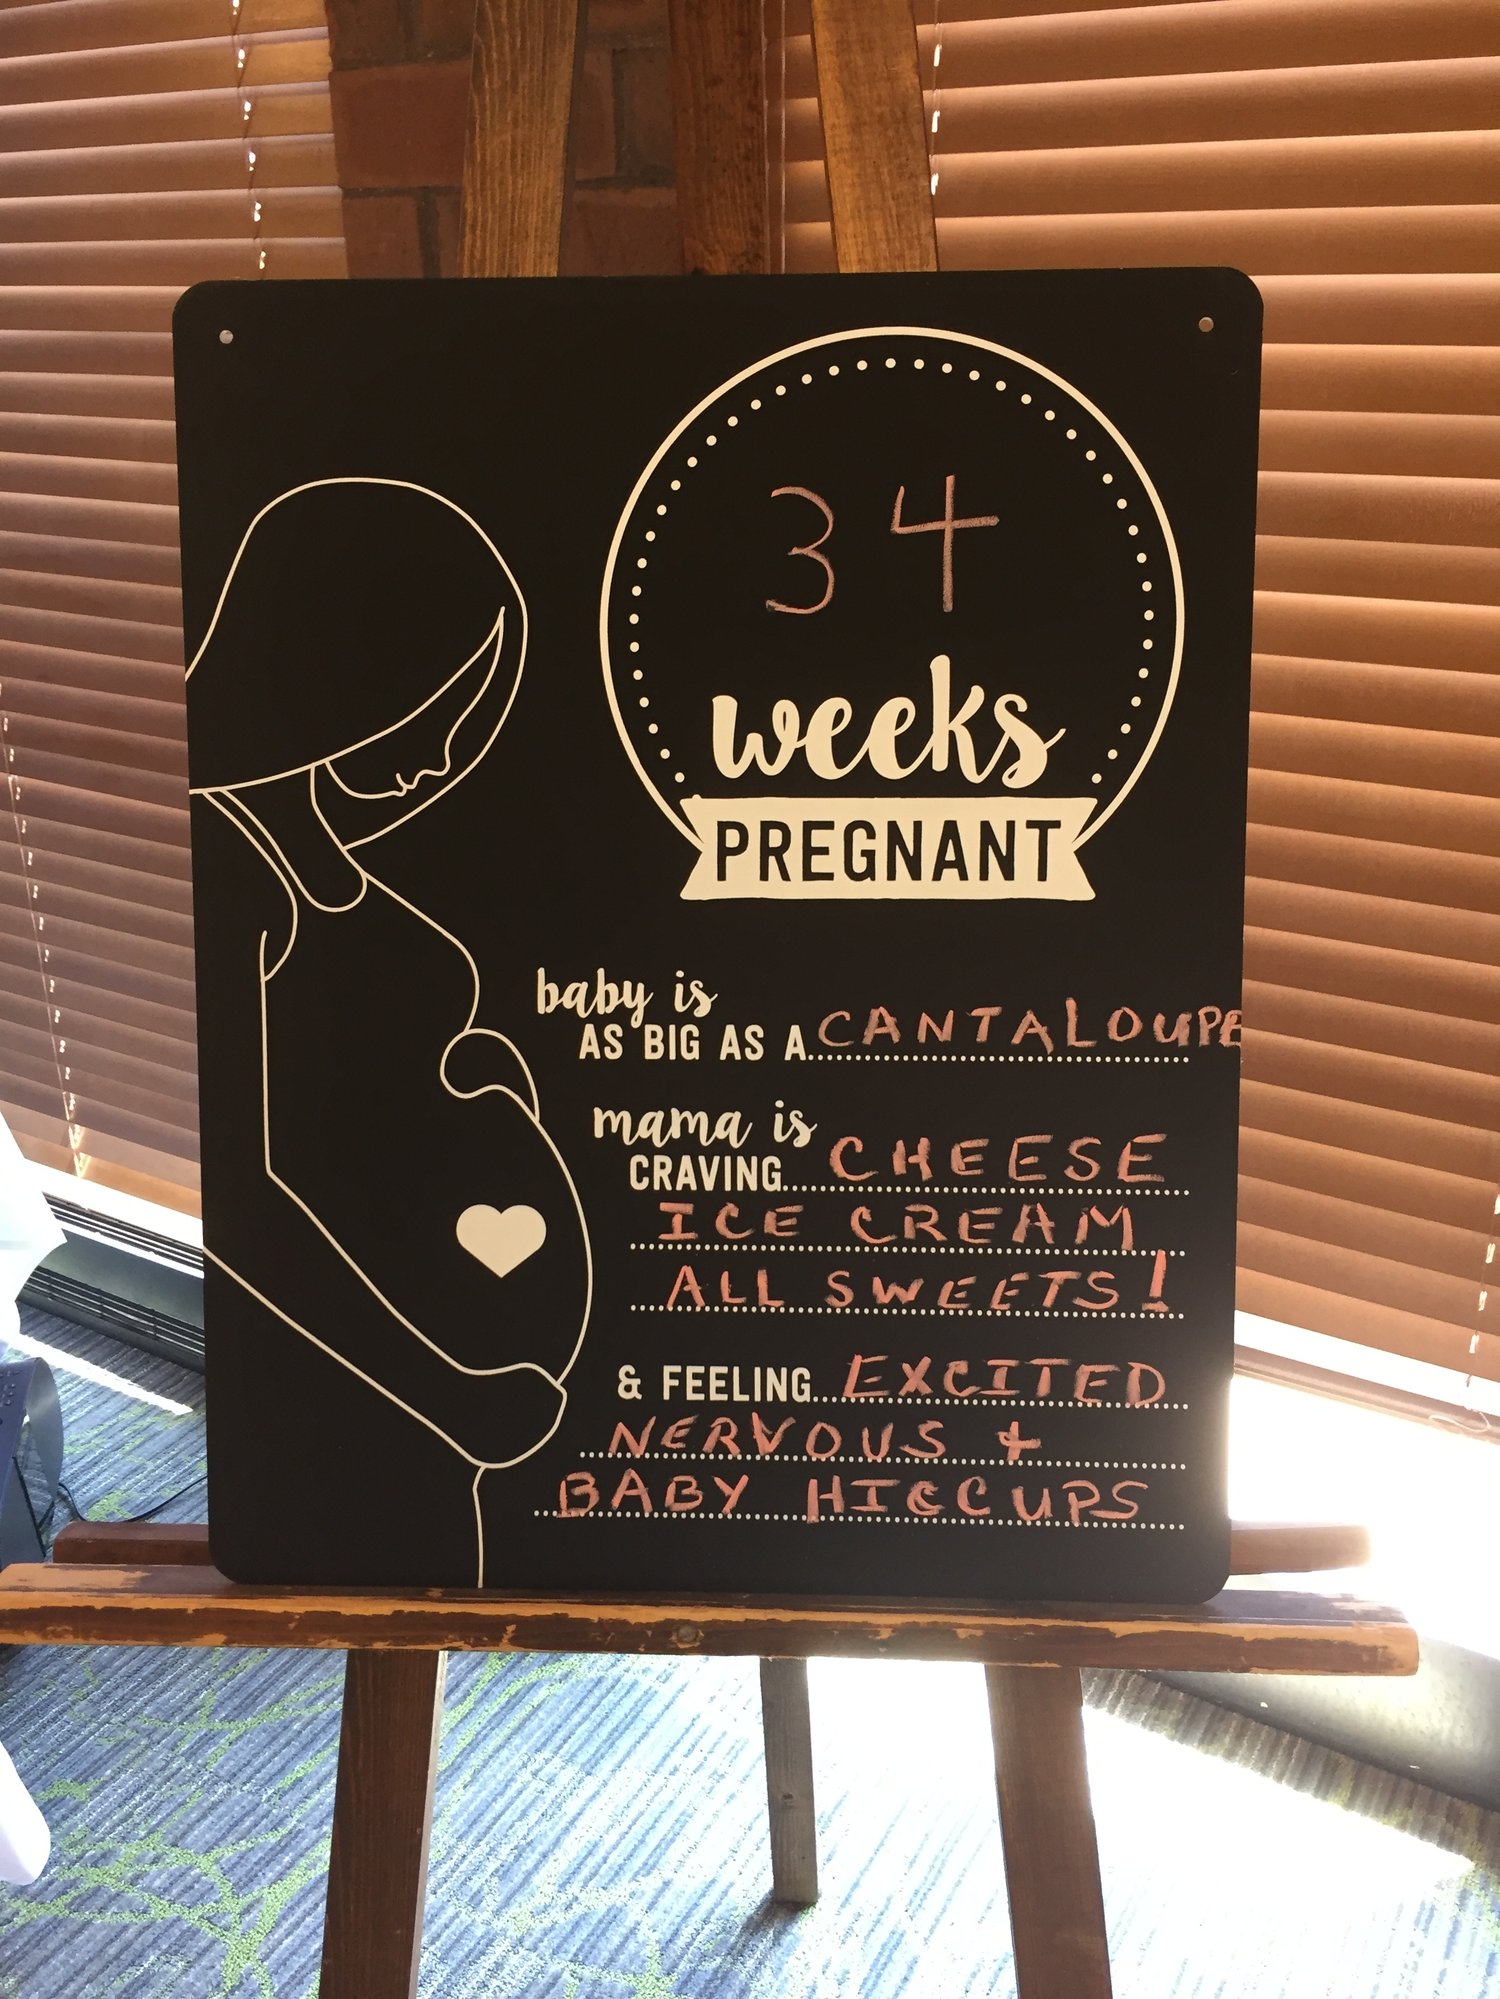 34
weeks
PREGNANT
baby is
AS BIG AS A CANTALOUPE
mama is
CRAVING CHEESE
ICE CREAM
ALL SWEETS!
& FEELING EXCITED
NERVOUS +
BABY HICCUPS